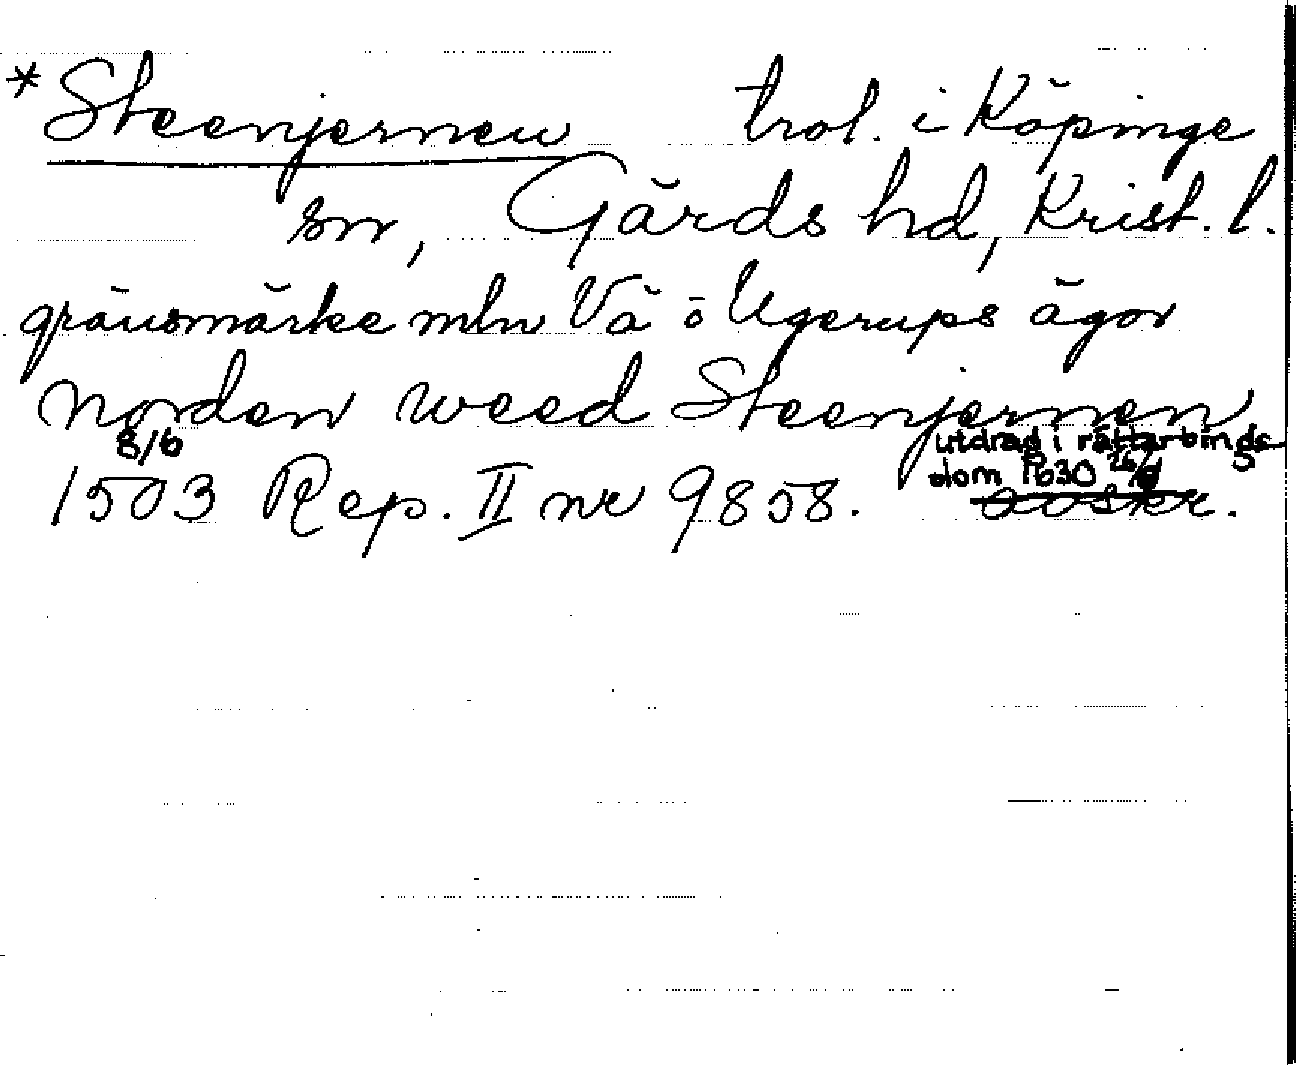 *Steenjernen trol. i Köpinge
sn, Gärds hd, Krist. l.
gränsmärke mln Vä o Ugerups ägor
norden weed Steenjernen
8/6 utdrag i rättarbings
1503 Rep. II nr 9858. dom 1630 26/5
avskr.